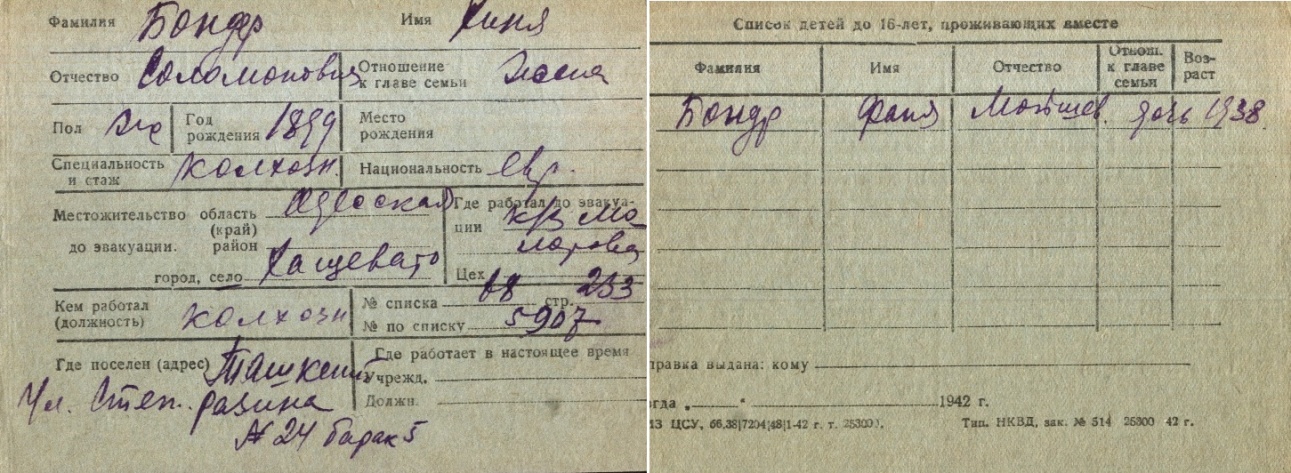 Фамилия Бондр Имя Хиня
Отчество Соломоновна Отношение к главе семьи
Пол Же Год рождения 1899 Место рождения
Специальность и стаж колхозн. Национальность евр.
Местожительство до эвакуации. область (край) Одесская Где работал до эвакуации к/з Молотова
район
город, село Хащевато Цех
Кем работал (должность) колхозн № списка 68 стр. 233
№ по списку 5907
Где поселен (адрес) Ташкент Где работает в настоящее время
Учрежд.
Ул. Степ. Разина Должн.
№ 24 барак 5
Список детей до 16-лет, проживающих вместе
Фамилия Имя Отчество Отнош. к главе семьи Возраст
Бондр Фаня дочь 1938
правка выдана: кому
огда „ “ 1942 г.
ИЗ ЦСУ, 66,38|7204|48|1-42 г. т. 25300. Тип. НКВД, зак. № 514 25300 42 г.